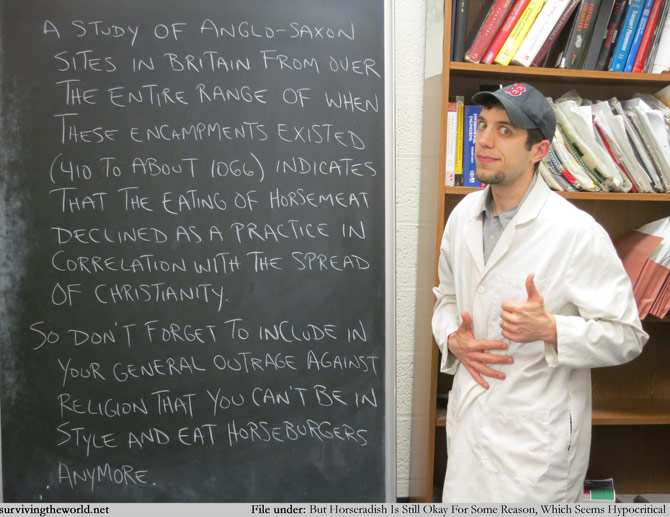 A STUDY OF ANGLO-SAXON
SITES IN BRITAIN FROM OVER
THE ENTIRE RANGE OF WHEN
THESE ENCAMPMENTS EXISTED
(410 TO ABOUT 1066) INDICATES
THAT THE EATING OF HORSEMEAT
DECLINED AS A PRACTICE IN
CORRELATION WITH THE SPREAD
OF CHRISTIANITY.
SO DON'T FORGET TO INCLUDE IN
YOUR GENERAL OUTRAGE AGAINST
RELIGION THAT YOU CAN'T BE IN
STYLE AND EAT HORSEBURGERS
ANYMORE.
B
survivingtheworld.net
File under: But Horseradish Is Still Okay For Some Reason, Which Seems Hypocritical